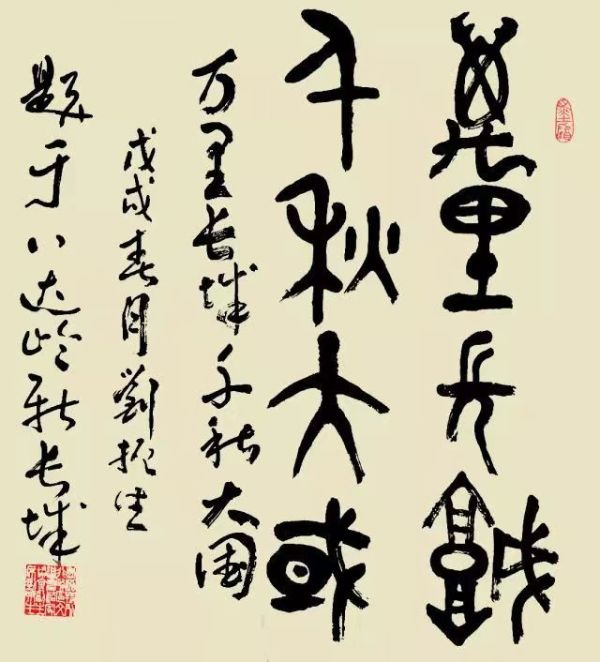 萬里長城
千秋大或
万里长城千秋大国
戊戌春月劉振生
题于八达岭新长城